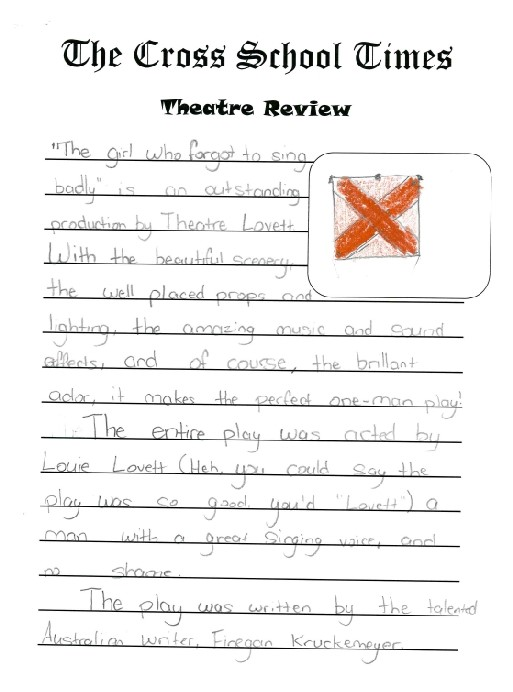 The Cross School Times
Theatre Review
"The girl who forgot to sing
badly" is an outstanding
production by Theatre Lovett
With the beautiful scenery,
the well placed props and
lighting, the amazing music and sound
effects, and of course, the brillant
actor, it makes the perfect one-man play!
The entire play was acted by
Louie Lovett (Heh, you could say the
play was so good you'd "Lovett") a
man with a great singing voice, and
no shame.
The play was written by the talented
Australian writer, Finegan Kruckemeyer.